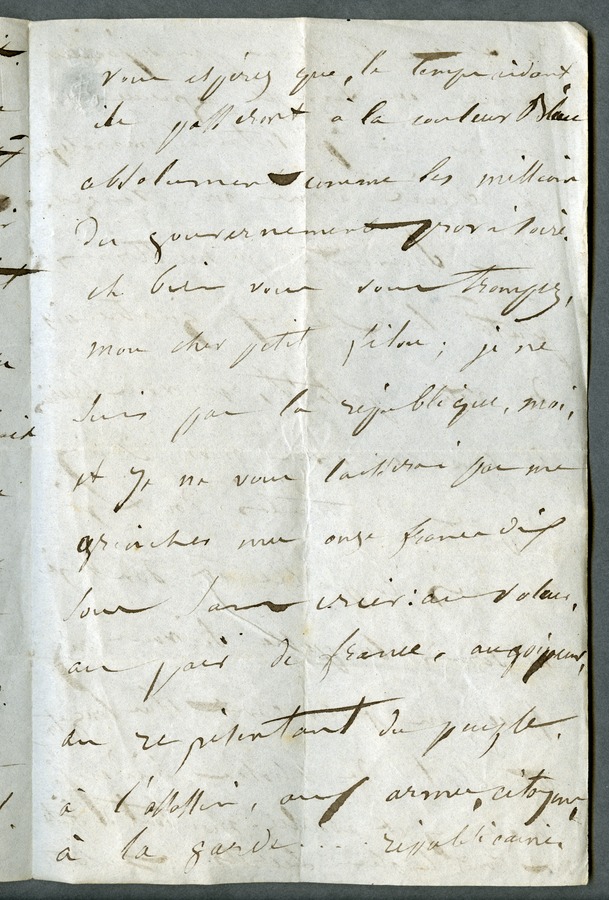 vous espérez que, le temps aidant
ils passeront à la couleur Bleue
absolument comme les millions
du gouvernement provisoire.
eh bien vous vous trompez,
mon cher petit filou; je ne
suis pas la république, moi,
et je ne vous laisserai pas me
grincher mes onze francs dix
sous sans crier: au voleur,
au pair de france, au goipeur,
au représentant du peuple.
à l'assassin, aux armes, citoyens,
à la garde.... républicaine.